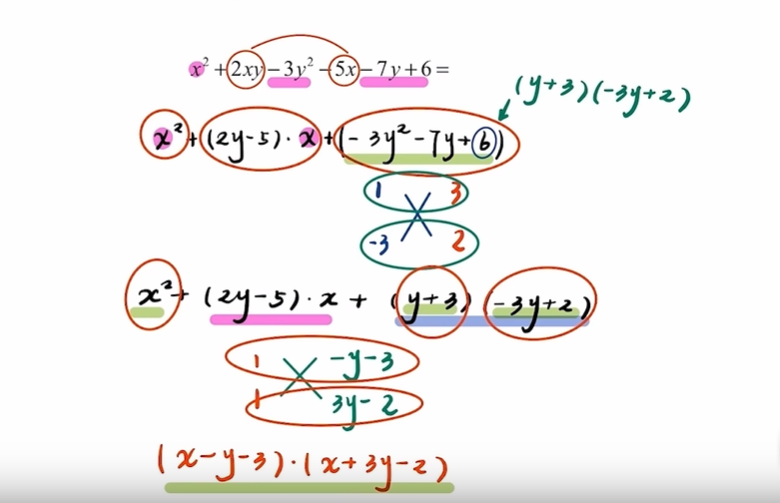 x² + 2xy − 3y² − 5x − 7y + 6 =
(y+3)(-3y+2)
x² + (2y-5)·x + (-3y²-7y+6)
1 3
-3 2
x² + (2y-5)·x + (y+3)(-3y+2)
1 -y-3
1 3y-2
(x-y-3)·(x+3y-2)